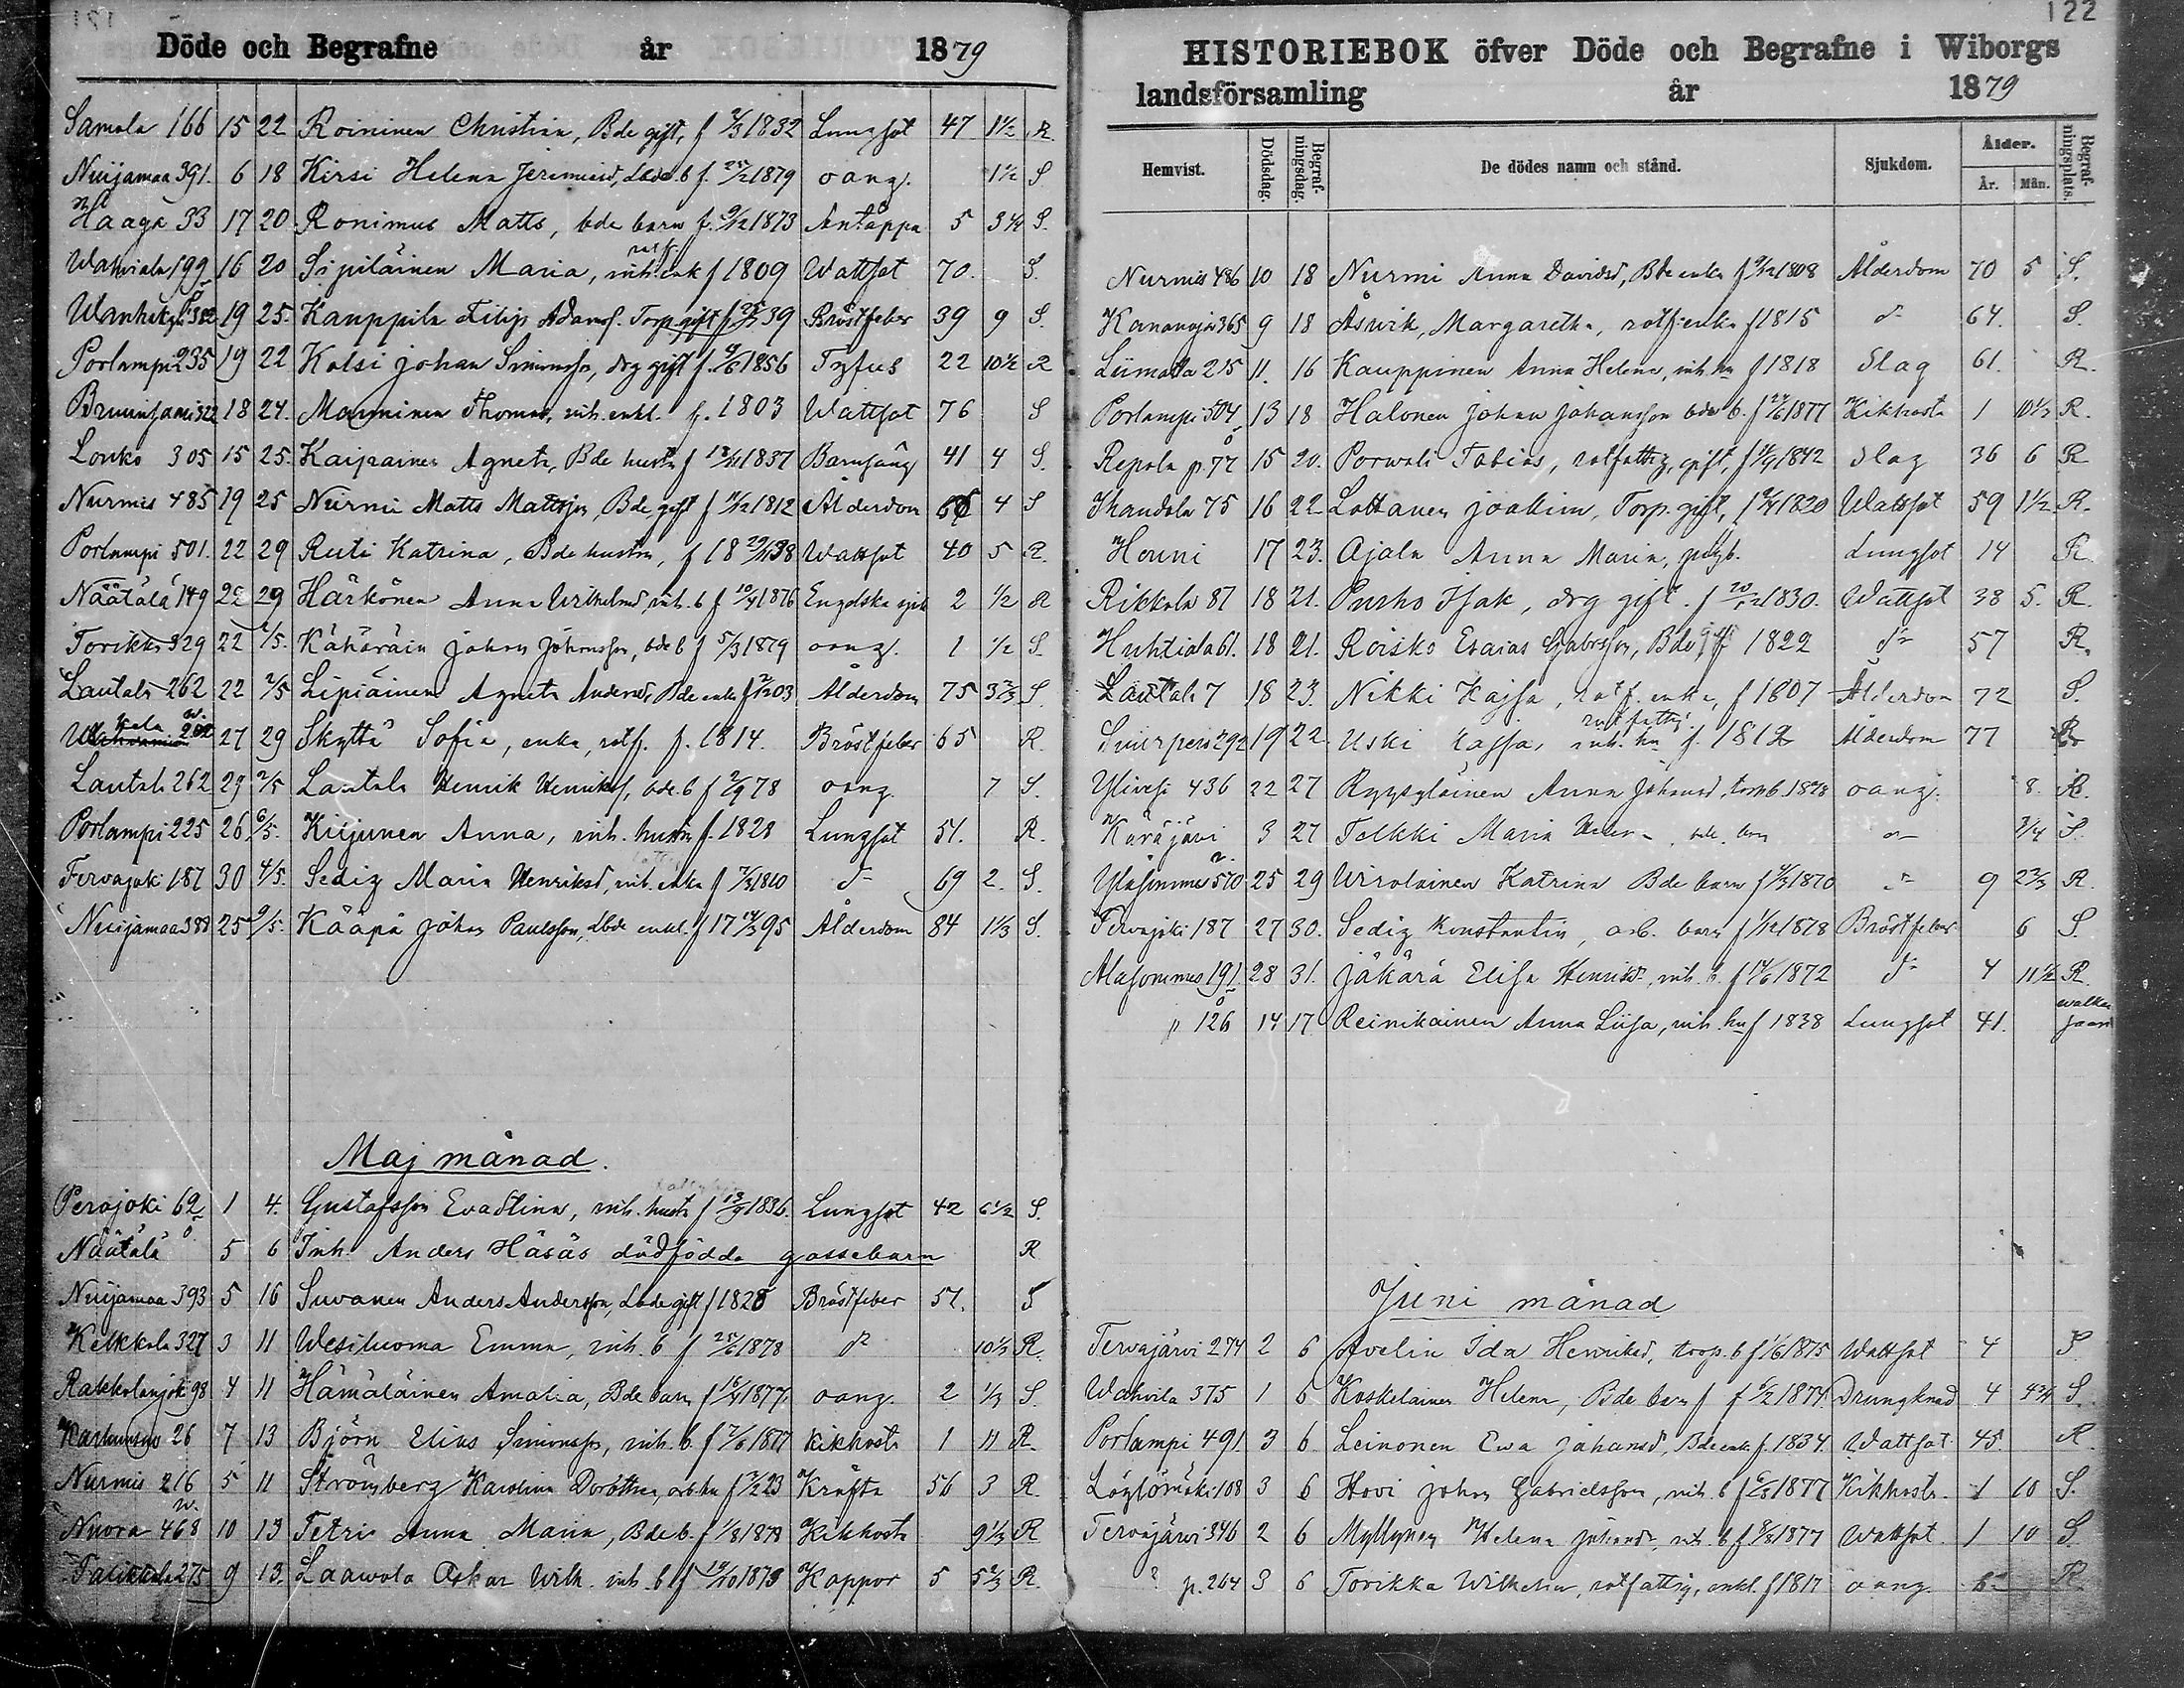 Döde och Begrafne år 1879
Samola 166 15 22 Roininen Christina, Bde gift, f 1832 Lungsot 47 1½ R.
Nuijamaa 391. 6 18 Kirsi Helena Jeremiasd, Lbde b f. 25/2 1879 oang. 1½ S
Haaga 33 17 20 Ronimus Matts, bde barn f. 9/12 1873 Antäppa 5 3¼ S.
Wahviala 199 16 20 Sipiläinen Maria, rotf. enk f 1809 Wattsot 70. S.
19 25. Kauppila Filip Adamss. Torp. gift f 39 Bröstfeber 39 9 S.
Porlampi 235 19 22 Kolsi Johan Simonsson, drg gift f. 1856 Tyfus 22 10½ R
322 18 24. Manninen Thomas, inh. enkl. f. 1803 Wattsot 76 S
Louko 305 15 25. Kaipainen Agneta, Bde hustr f 1837 Barnsäng 41 4 S.
Nurmis 485 19 25 Nurmi Matts Mattsson, Bde gift f 1812 Ålderdom 66 4 S
Porlampi 501. 22 29 Ruti Katrina, Bde hustru, f 1838 Wattsot 40 5 R.
Näätälä 149 22 29 Härkönen Anna Wilhelmd, inh. b f 1876 Engelska sjuk 2 ½ R
Torikka 329 22 2/5. Kähäräin Johan Johansson, bde b f 5/3 1879 oang. 1 ½ S.
Lautala 262 22 2/5 Lipiäinen Agneta Andersd, Bde enka f 03 Ålderdom 75 3⅔ S.
27 29 Skyttä Sofia, enka, rotf. f. 1814. Bröstfeber 65 R.
Lautala 262 29 2/5 Lautala Henrik Henrikss, bde b f 2/9 78 oang. 7 S.
Porlampi 225 26 6/5. Kiijunen Anna, inh. hustru f. 1828 Lungsot 51. R.
Tervajoki 187 30 4/5. Sedig Maria Henriksd, inh. enka f 1810 d:o 69 2. S.
Nuijamaa 388 25 9/5. Kääpä Johan Paulsson, Lbde enkl. f 1795 Ålderdom 84 1⅓ S.
Maj månad.
Peräjoki 62 1 4. Gustafsson Eva Stina, inh. hustr f 1836. Lungsot 42 6½ S.
Näätälä 5 6 Inh. Anders Häsäs dödfödda gossebarn R
Nuijamaa 393 5 16 Suvanen Anders Andersson, Lbde gift f 1828 Bröstfeber 51. S
Kelkkala 327 3 11 Wesiluoma Emma, inh. b f 25/6 1878 d:o 10⅓ R.
Rakkolanjok 98 4 11 Hämäläinen Amalia, Bde barn f 16/4 1877. oang. 2 ⅓ S.
Karhusuo 26 7 13 Björn Elias Simonsson, inh. b. f 7/6 1877 Kikhosta 1 11 R.
Nurmis 216 5 11 Strömberg Karolina Dorothea, arb. hu f 23 Kräfta 56 3 R.
Nuora 468 10 13 Tetri Anna Maria, Bde b. f 1/8 1878 Kikhosta 9⅓ R
275 9 13. Laawola Oskar Wilh. inh. b f 1873 Koppor 5 5⅔ R.
122
HISTORIEBOK öfver Döde och Begrafne i Wiborgs
landsförsamling år 1879
Hemvist. Dödsdag. Begrafningsdag. De dödes namn och stånd. Sjukdom. Ålder. År. Mån. Begrafningsplats.
Nurmis 486 10 18 Nurmi Anna Davidsd, Bde enka f 9/12 1808 Ålderdom 70 5 S.
Kananoja 365 9 18 Äswik, Margaretha, rotf. enka f 1815 d:o 64. S.
Liimatta 215 11. 16 Kauppinen Anna Helena, inh. hu f 1818 Slag 61. R.
Porlampi 504 13 18 Halonen Johan Johansson bde b. f 1877 Kikhosta 1 10½ R.
Repola p. 77 15 20. Porwali Tobias, rotfattig, gift, f 1842 Slag 36 6 R
Ihandola 75 16 22 Lottanen Joakim, Torp. gift, f 1820 Wattsot 59 1½ R.
Houni 17 23. Ajala Anna Maria, Lungsot 14 R.
Rikkola 87 18 21. Pusho Isak, drg gift. f 1830. Wattsot 38 5. R.
Huhtiala 61. 18 21. Roisko Esaias Gabrsson, Bde gift 1822 d:o 57 R.
Lautala 7 18 23. Nikki Kajsa, rotf. enka, f 1807 Ålderdom 72 S.
Suurpero 292 19 22 Uski Kajsa, rotfattig inh. hu f. 1812 Ålderdom 77 R
Ylivesi 436 22 27 Ryyppyläinen Anna Johansd, torp b. 1878 oang. 8. R.
Käräjävi 3 27 Telkki Maria Helena, bde. barn d:o ¾ S.
Yläsommee 570 25 29 Wirolainen Katrina Bde barn f 1870 d:o 9 2⅔ R.
Tervajoki 187 27 30. Sedig Konstantin, arb. barn f 1/12 1878 Bröstfeber 6 S.
Alasommee 191 28 31. Jäkärä Elisa Henriksd. inh. b. f 14/6 1872 d:o 4 11½ R.
" 126 14 17 Reinikainen Anna Liisa, inh. hu f 1838 Lungsot 41.
Juni månad
Tervajärvi 274 2 6 Avelin Ida Henriksd, torp. b f 1/6 1875 Wattsot 4 S
Wahvila 375 1 6 Koskelainen Helena, Bde barn f 1874 Drunknad 4 4¾ S.
Porlampi 491 3 6 Leinonen Ewa Johansd, Bde enk f. 1834. Wattsot 45. R
Löylömäki 108 3 6 Hovi Johan Gabrielsson, inh. b f 1877 Kikhosta. 1 10 S.
Tervajärvi 346 2 6 Myllynen Helena Johansd. inh. b f 1877 Wattsot. 1 10 S.
p. 264 3 6 Torikka Wilhelm, rotfattig, enkl. f 1817 oang. R.